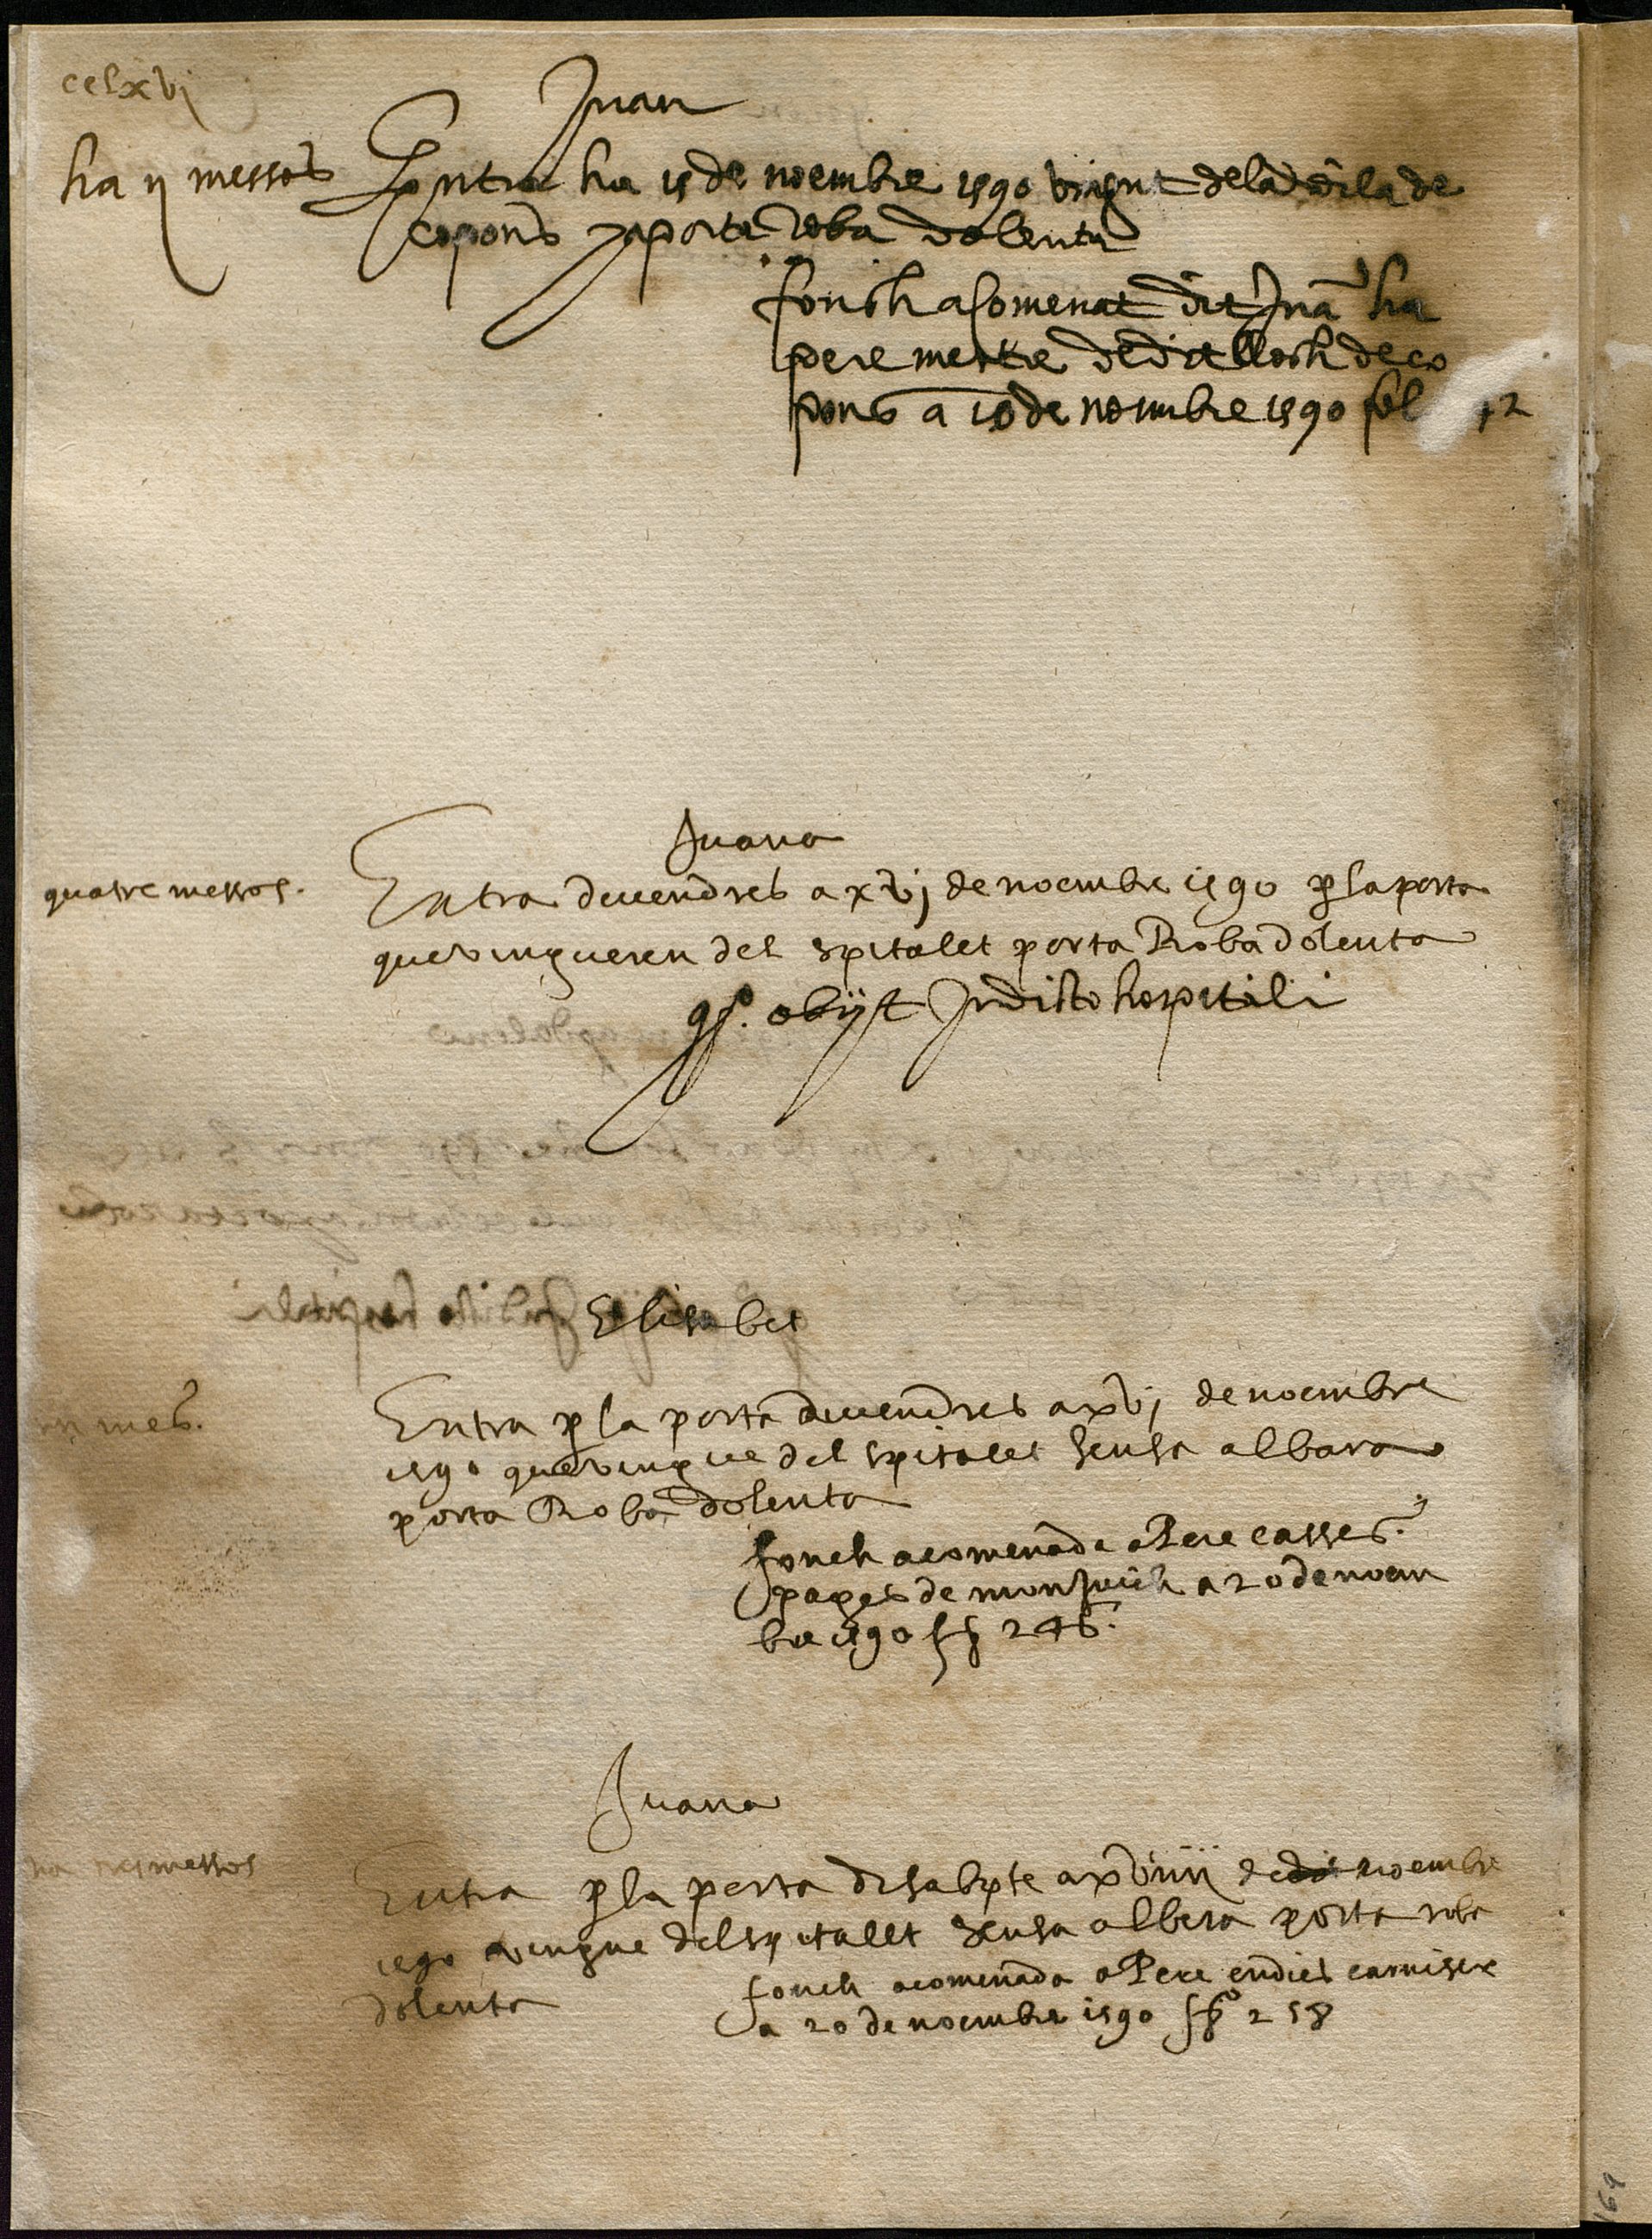 cclxvj
Juan
ha ij messos Entra ha 15 de noembre 1590 vingut dela vila de
copons y aporta roba dolenta
fonch acomenat dit Juā ha
pere mestre de dit lloch de co
pons a 15 de noembre 1590 fol 12
Juana
quatre messos. Entra divendres a xvj de noembre 1590 p la porta
que vingueren del spitalet porta Roba dolenta
obijt In dicto hospitali
Elisabet
un mes. Entra p la porta divendres a xvj de noembre
1590 que vingue del spitalet sensa albara
porta Roba dolenta
fonch acomenada a Pere casses
pages de monjuich a 20 de noem
bre 1590 246.
Juana
ha tres messos
Entra p la porta disapte a xviiij de noembre
1590 vingue del spitallet sensa albera porta roba
dolenta
fonch acomenada a Pere endies carniser
a 20 de noembre 1590 258
169